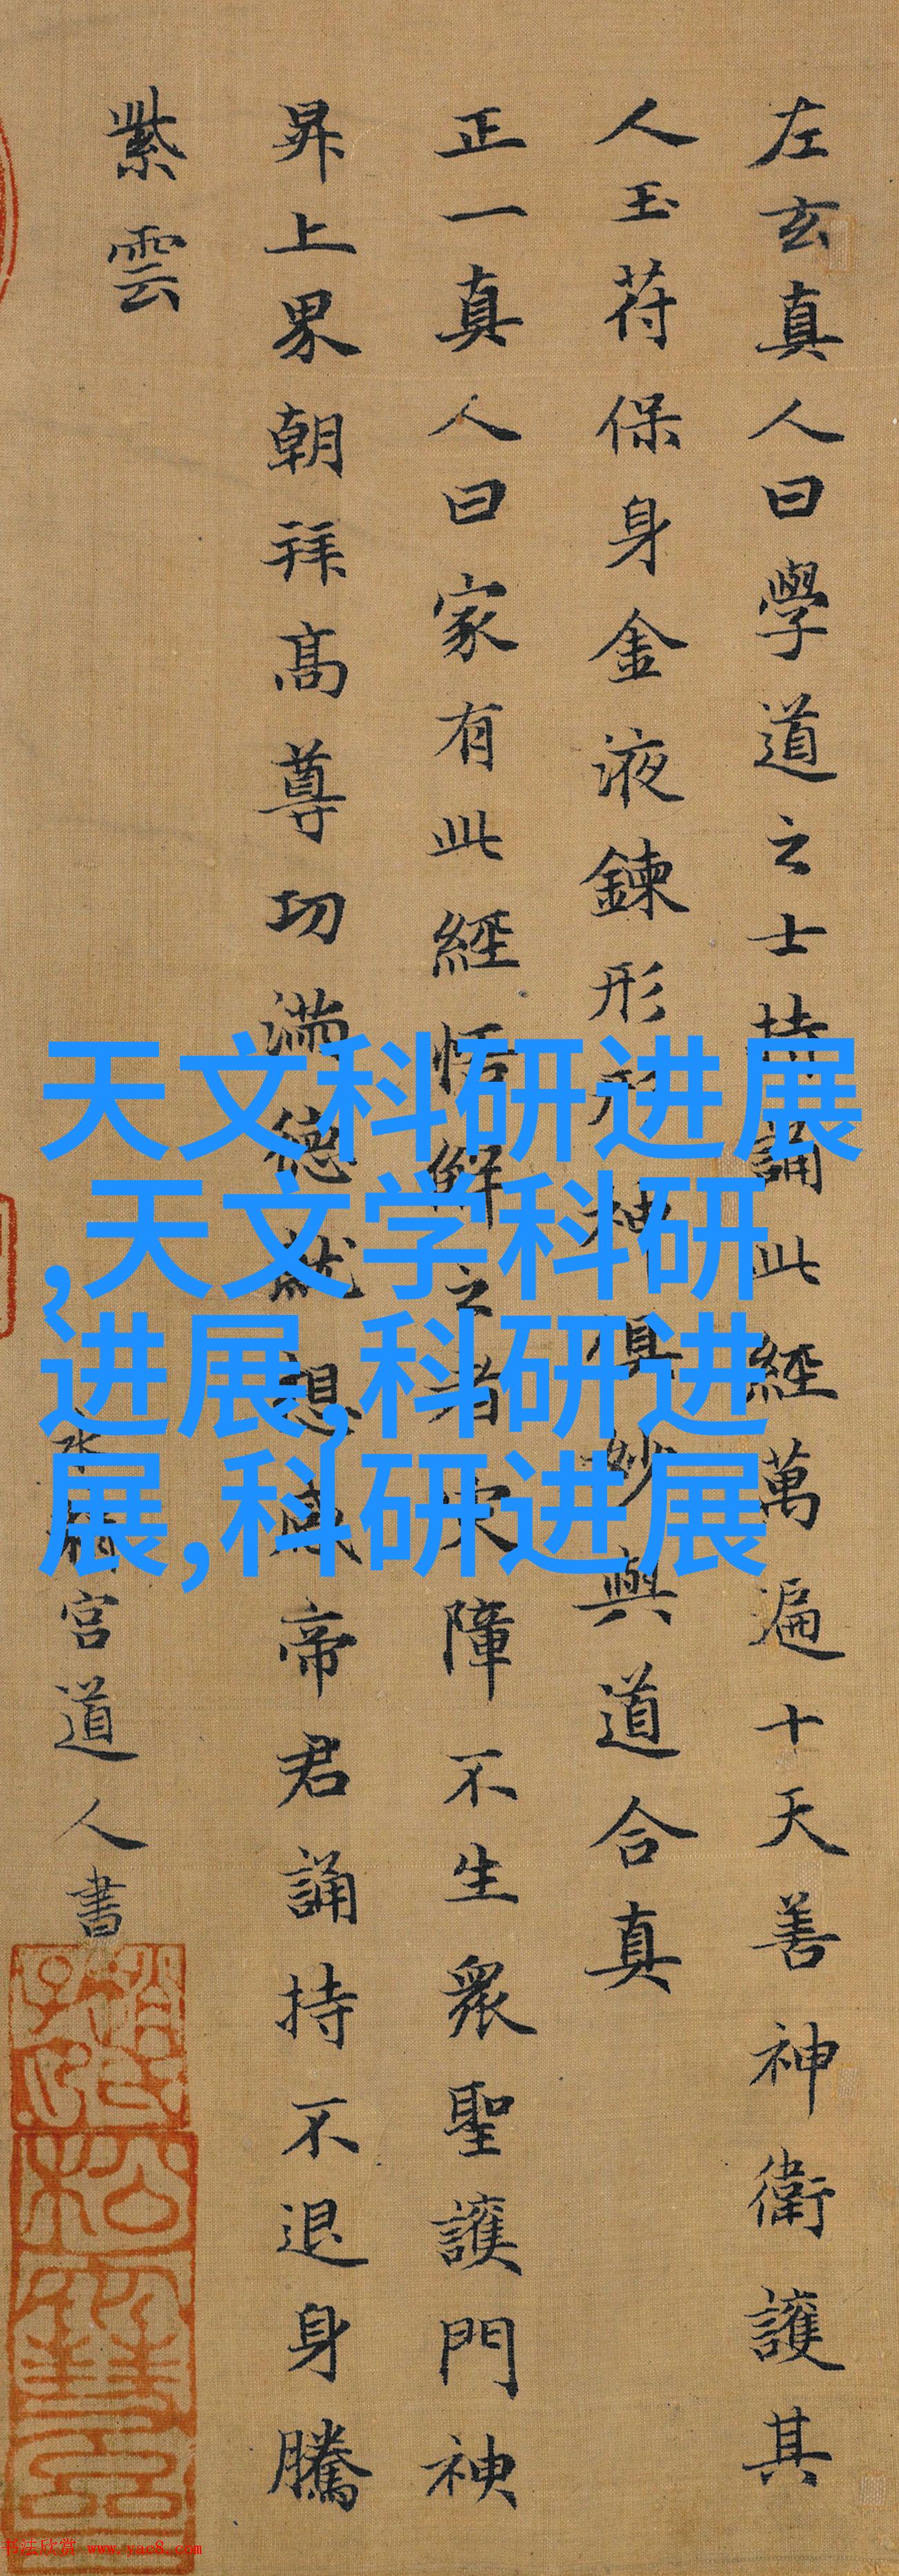 左玄真人曰學道之士持誦此經萬遍十天善神衛護其
人玉符保身金液鍊形形神俱妙與道合真
正一真人曰家有此經悟解之者灾障不生衆聖護門神
昇上界朝拜高尊功滿德就想感帝君誦持不退身騰
紫雲
宮道人書
天文科研进展
,天文学科研
进展,科研进
展,科研进展
书法欣赏 www.yac8.com